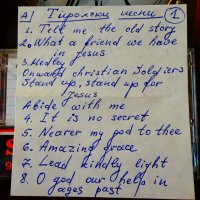 A) Тиролски песни ①
1. Tell me the old story
2. What a friend we have
in Jesus
3. Medley
Onward christian Solgiers
Stand up, stand up for
Jesus
Abide with me
4. It is no secret
5. Nearer my god to thee
6. Amazing grace
7. Lead kindly light
8. O god our help in
ages past